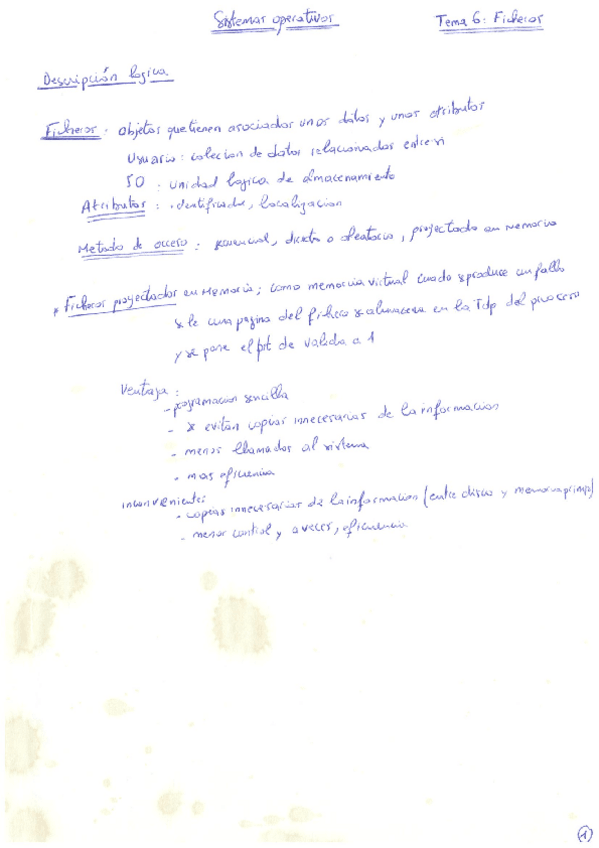 Sistemas operativos Tema 6: Ficheros
Descripción logica
Ficheros: objetos que tienen asociados unos datos y unos atributos
Usuario: colecion de datos relacionados entre si
SO: unidad logica de almacenamiento
Atributos: identificador, localizacion
Metodo de acceso: secuencial, directo o aleatorio, proyectado en memoria
* Ficheros proyectados en Memoria; como memoria virtual cuado se produce un fallo
se lee una pagina del fichero se almacena en la Tdp del proceso
y se pone el bit de valida a 1
Ventaja:
- programacion sencilla
- se evitan copias innecesarias de la informacion
- menos llamadas al sistema
- mas eficiencia
inconveniente:
- copias innecesarias de la informacion (entre disco y memoria principal)
- menor control y a veces, eficiencia
1